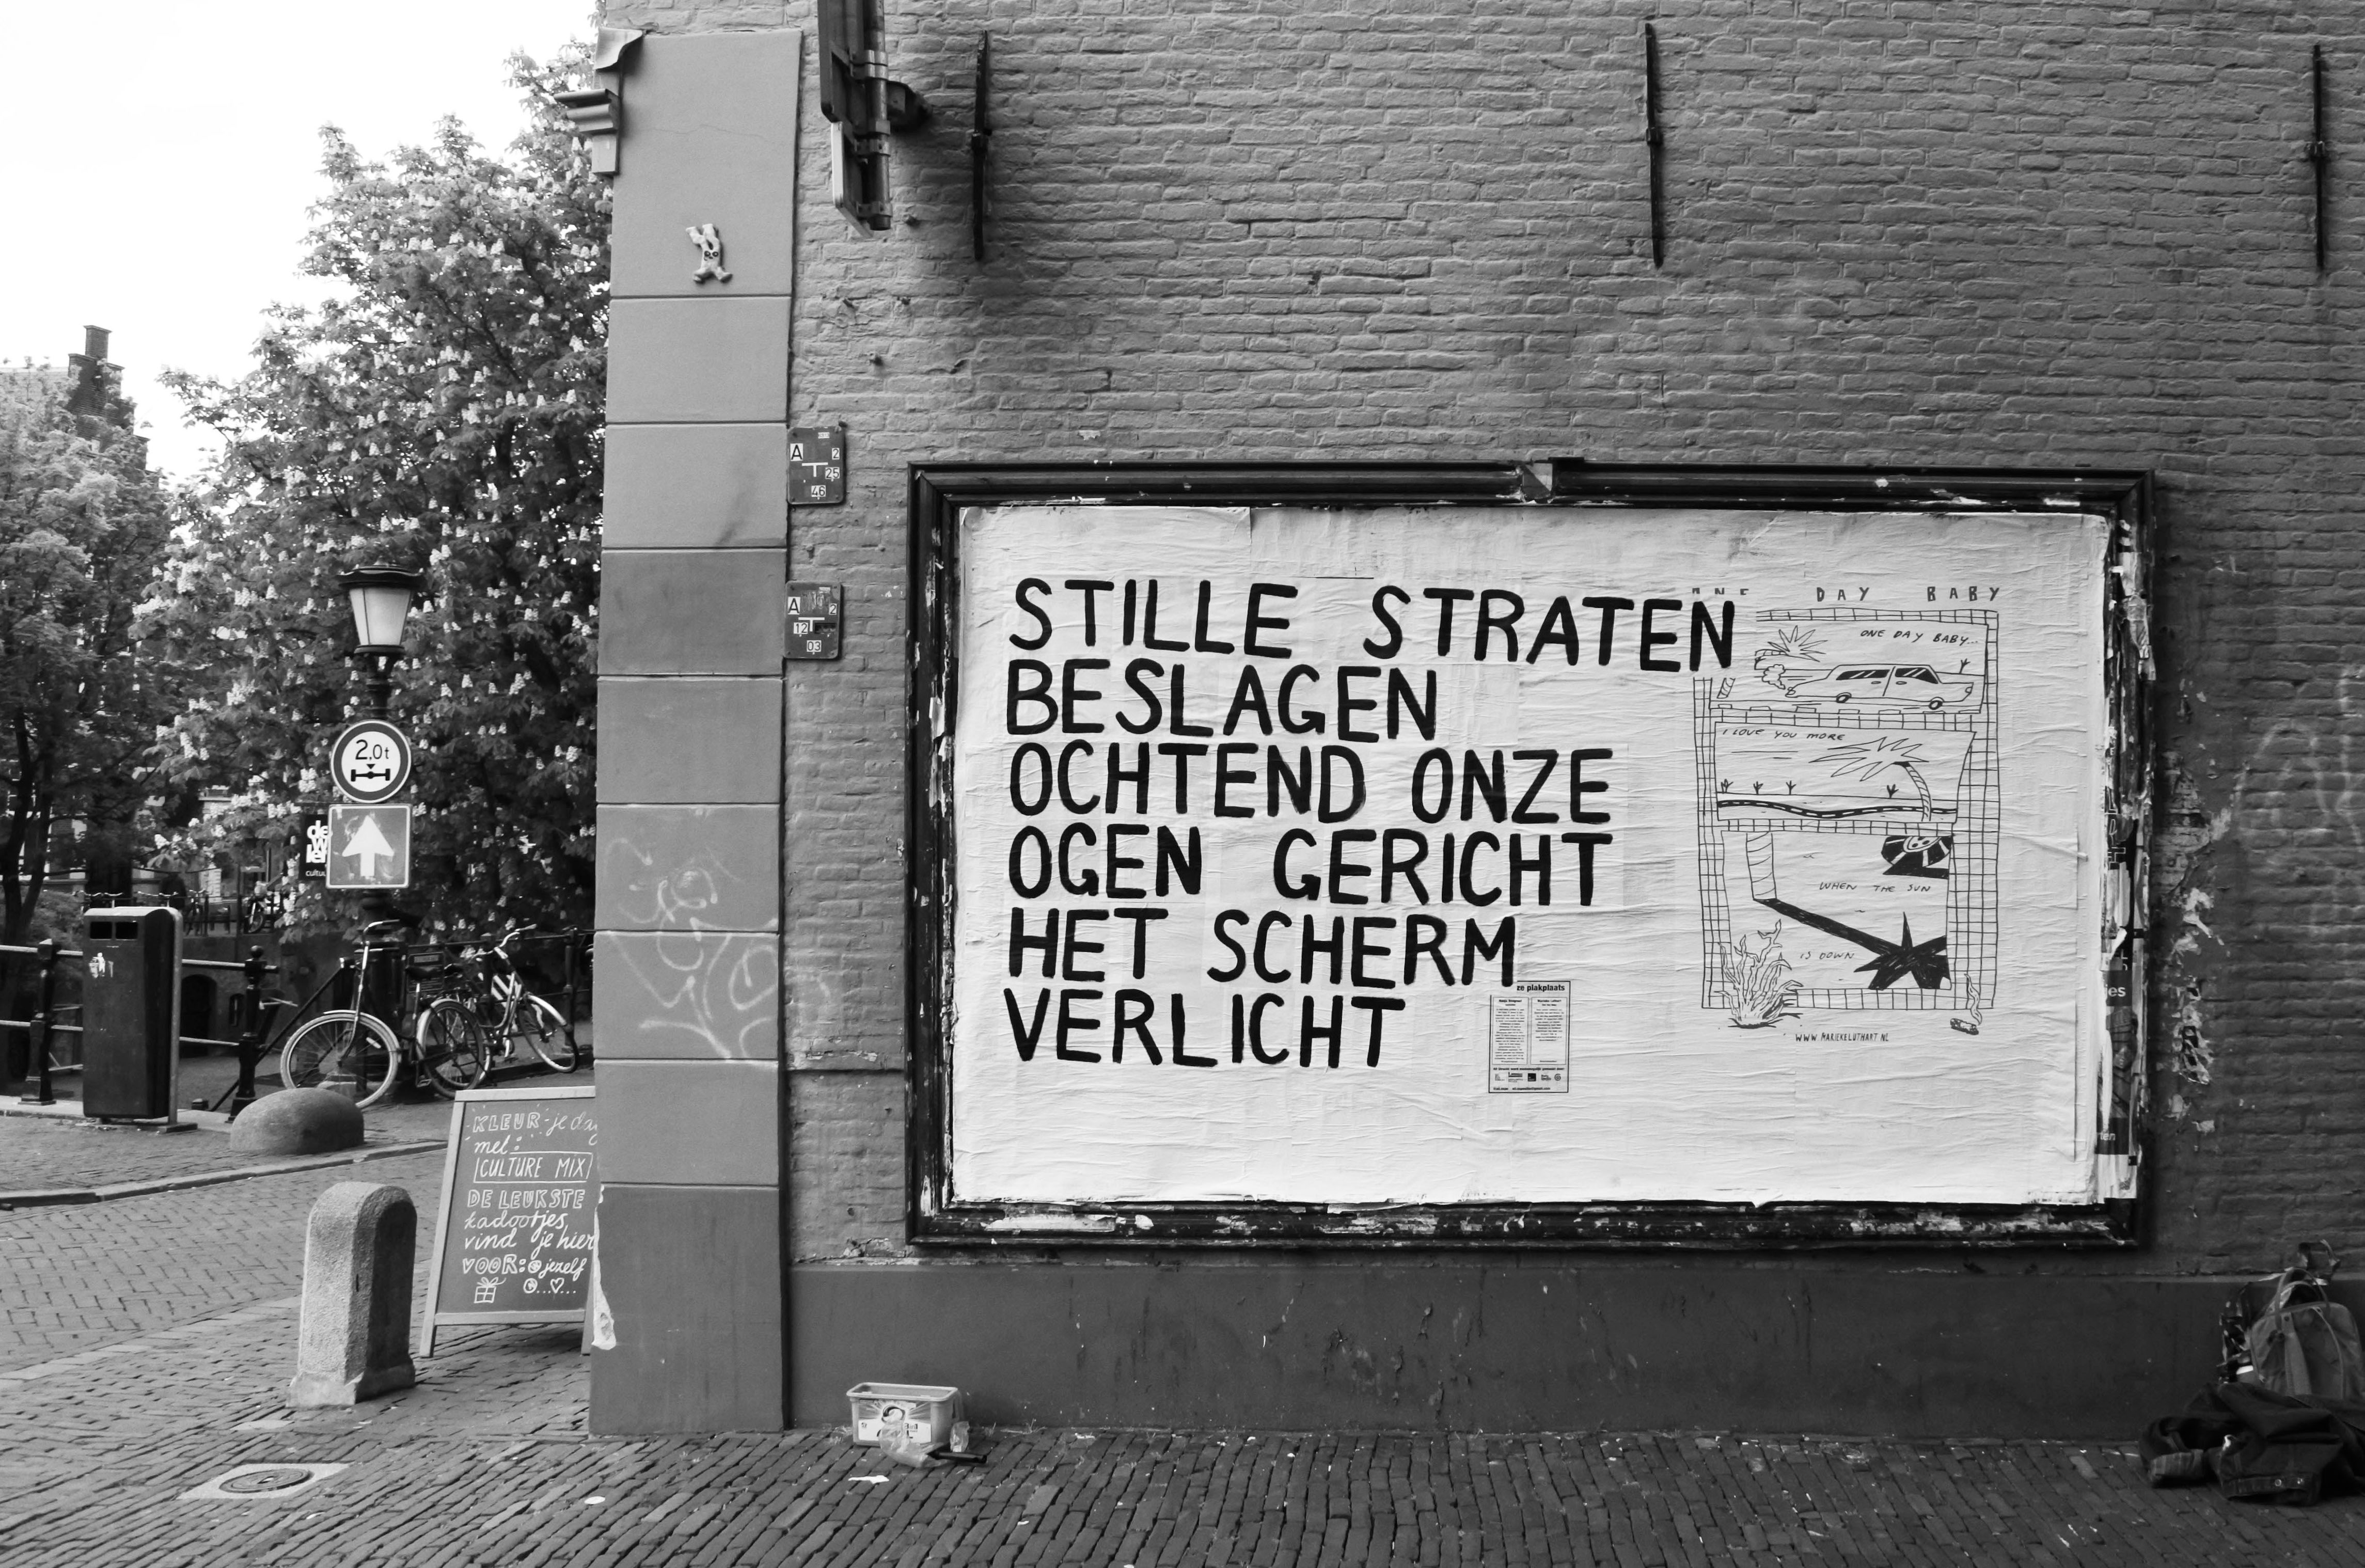 STILLE STRATEN
BESLAGEN
OCHTEND ONZE
OGEN GERICHT
HET SCHERM
VERLICHT
DAY BABY
ONE DAY BABY...
I LOVE YOU MORE
WHEN THE SUN
IS DOWN
WWW.MARIEKELUTHART.NL
ze plakplaats
A 2
25
46
A 2
12
03
2,0t
de
KLEUR je dag
met:
CULTURE MIX
DE LEUKSTE
kadootjes
vind je hier
VOOR: jezelf
es